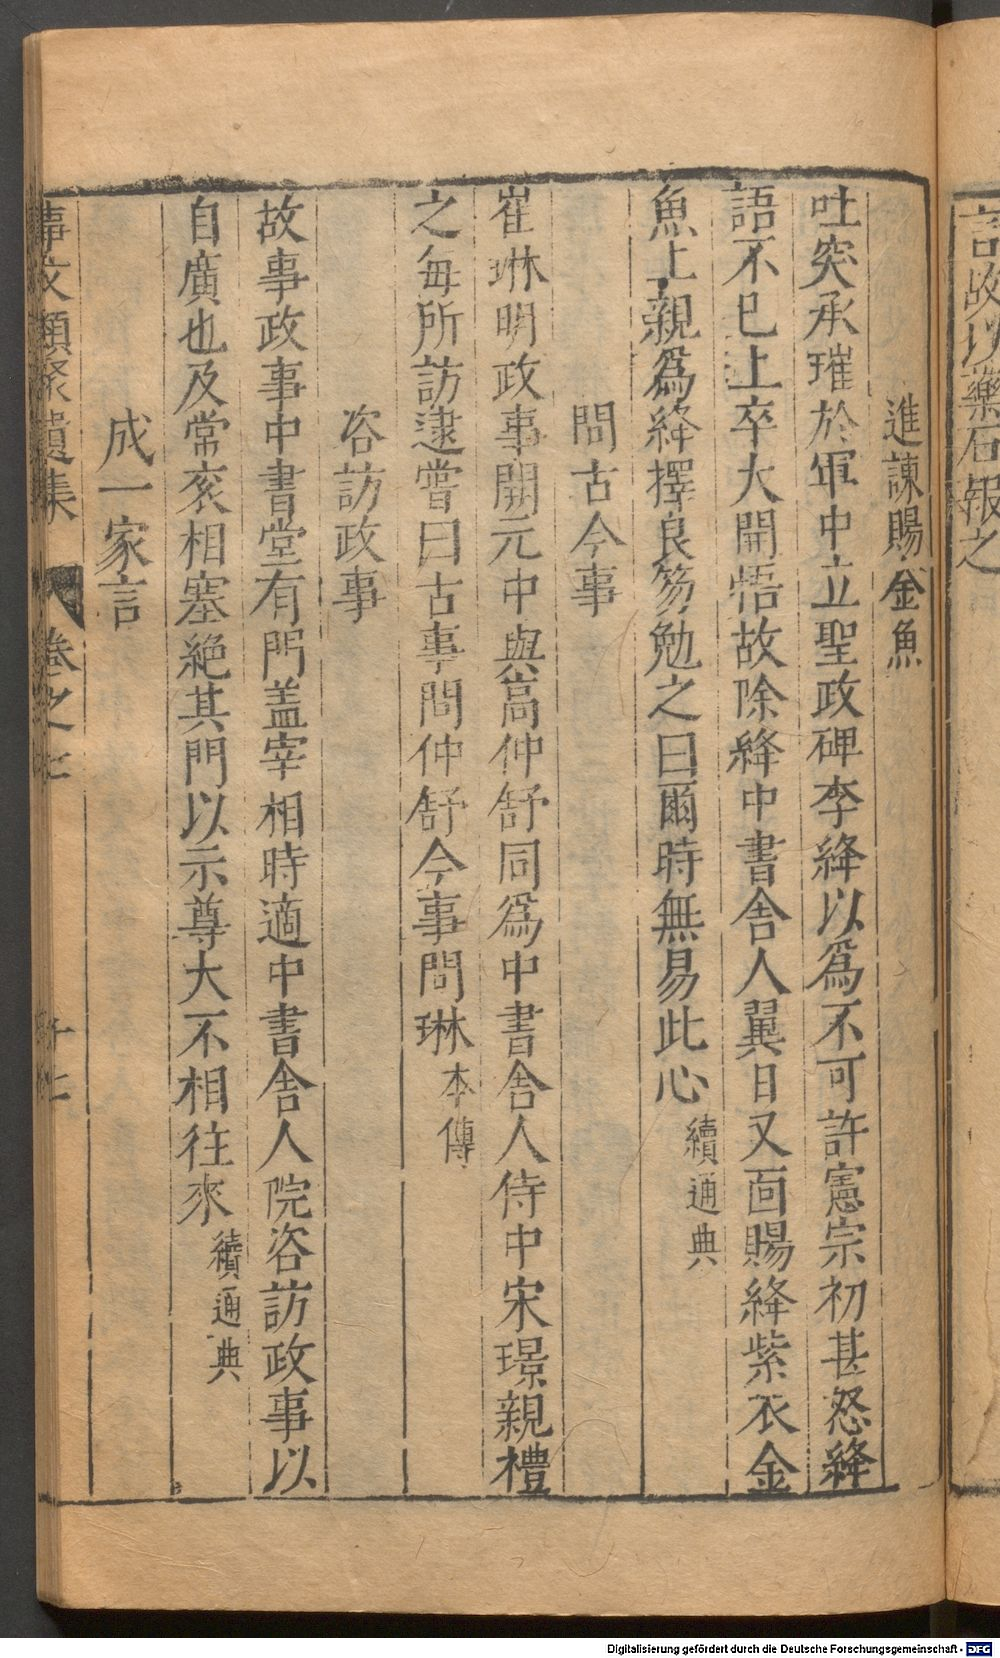 言以藥石報之
進諫賜金魚
吐突承璀於軍中立聖政碑李絳以爲不可許憲宗初甚怒絳
語不已上卒大開悟故除絳中書舍人翼日又面賜絳紫衣金
魚上親爲絳擇良笏勉之曰爾時無易此心續通典
問古今事
崔琳明政事開元中與高仲舒同爲中書舍人侍中宋璟親禮
之每所訪逮嘗曰古事問仲舒今事問琳本傳
咨訪政事
故事政事中書堂有門盖宰相時適中書舍人院咨訪政事以
自廣也及常衮相塞絕其門以示尊大不相往來續通典
成一家言
事文類聚遺集 卷之七 十七
Digitalisierung gefördert durch die Deutsche Forschungsgemeinschaft - DFG